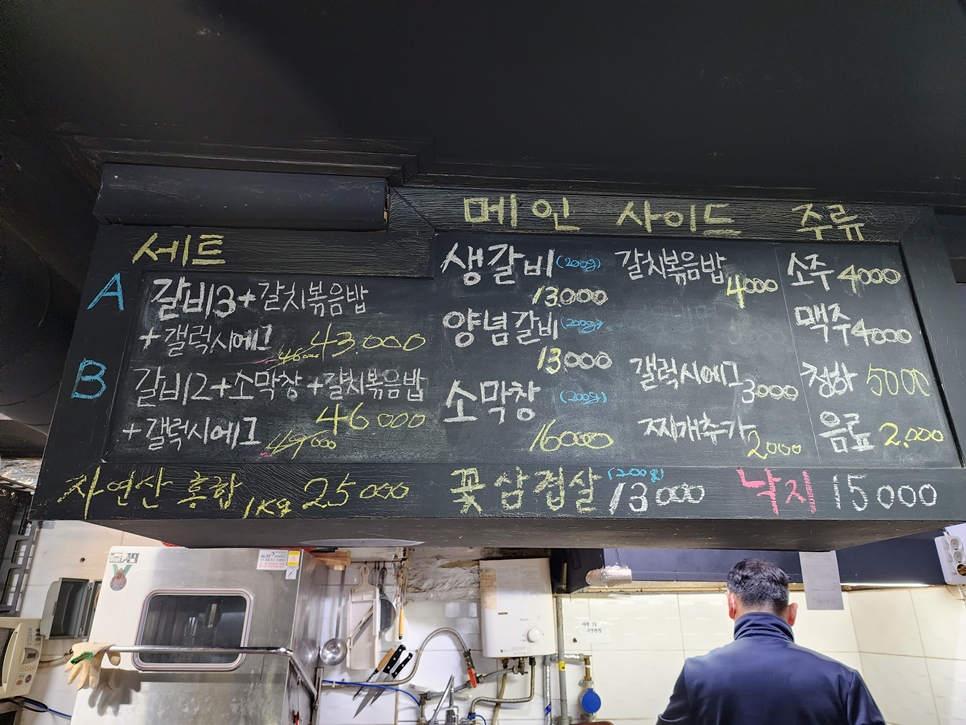 세트
A
갈비3+갈치볶음밥
+갤럭시에그 46000 43.000
B
갈비2+소막창+갈치볶음밥
46000
+갤럭시에그 49000
메인
생갈비 (200g)
13000
양념갈비 (200g)
13000
소막창 (200g)
16000
사이드
갈치볶음밥
4000
갤럭시에그 3000
찌개추가
2000
주류
소주 4000
맥주 4000
청하 5000
음료 2.000
자연산 홍합 1Kg 25000
꽃삼겹살 (200g) 13000
낙지 15000